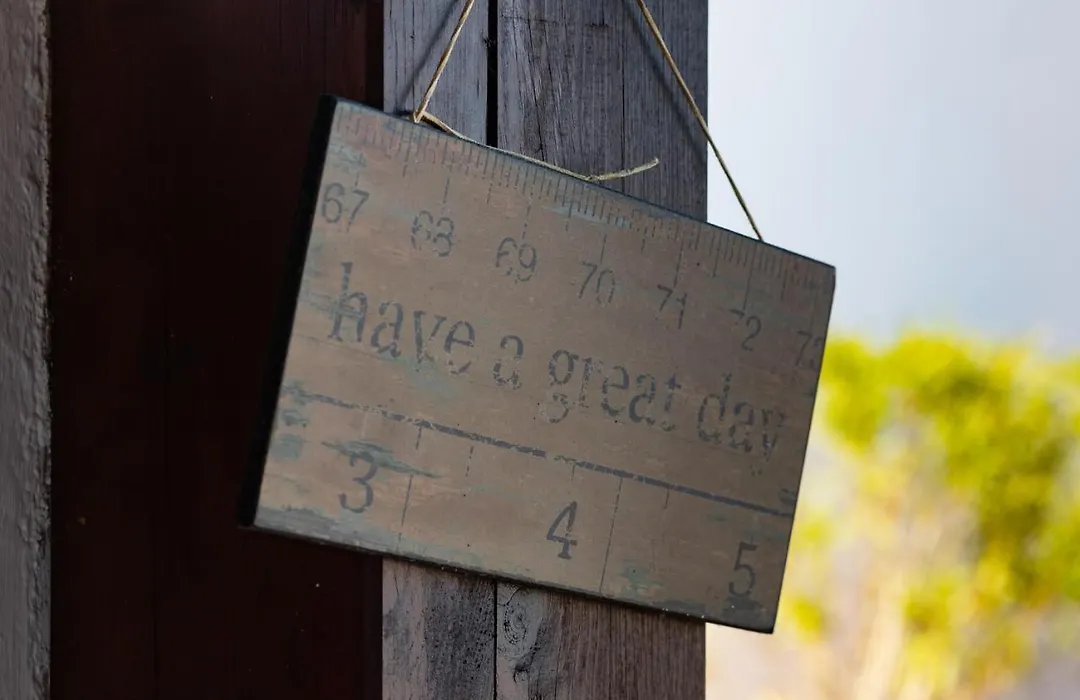 67 68 69 70 71 72 73
have a great day
3 4 5